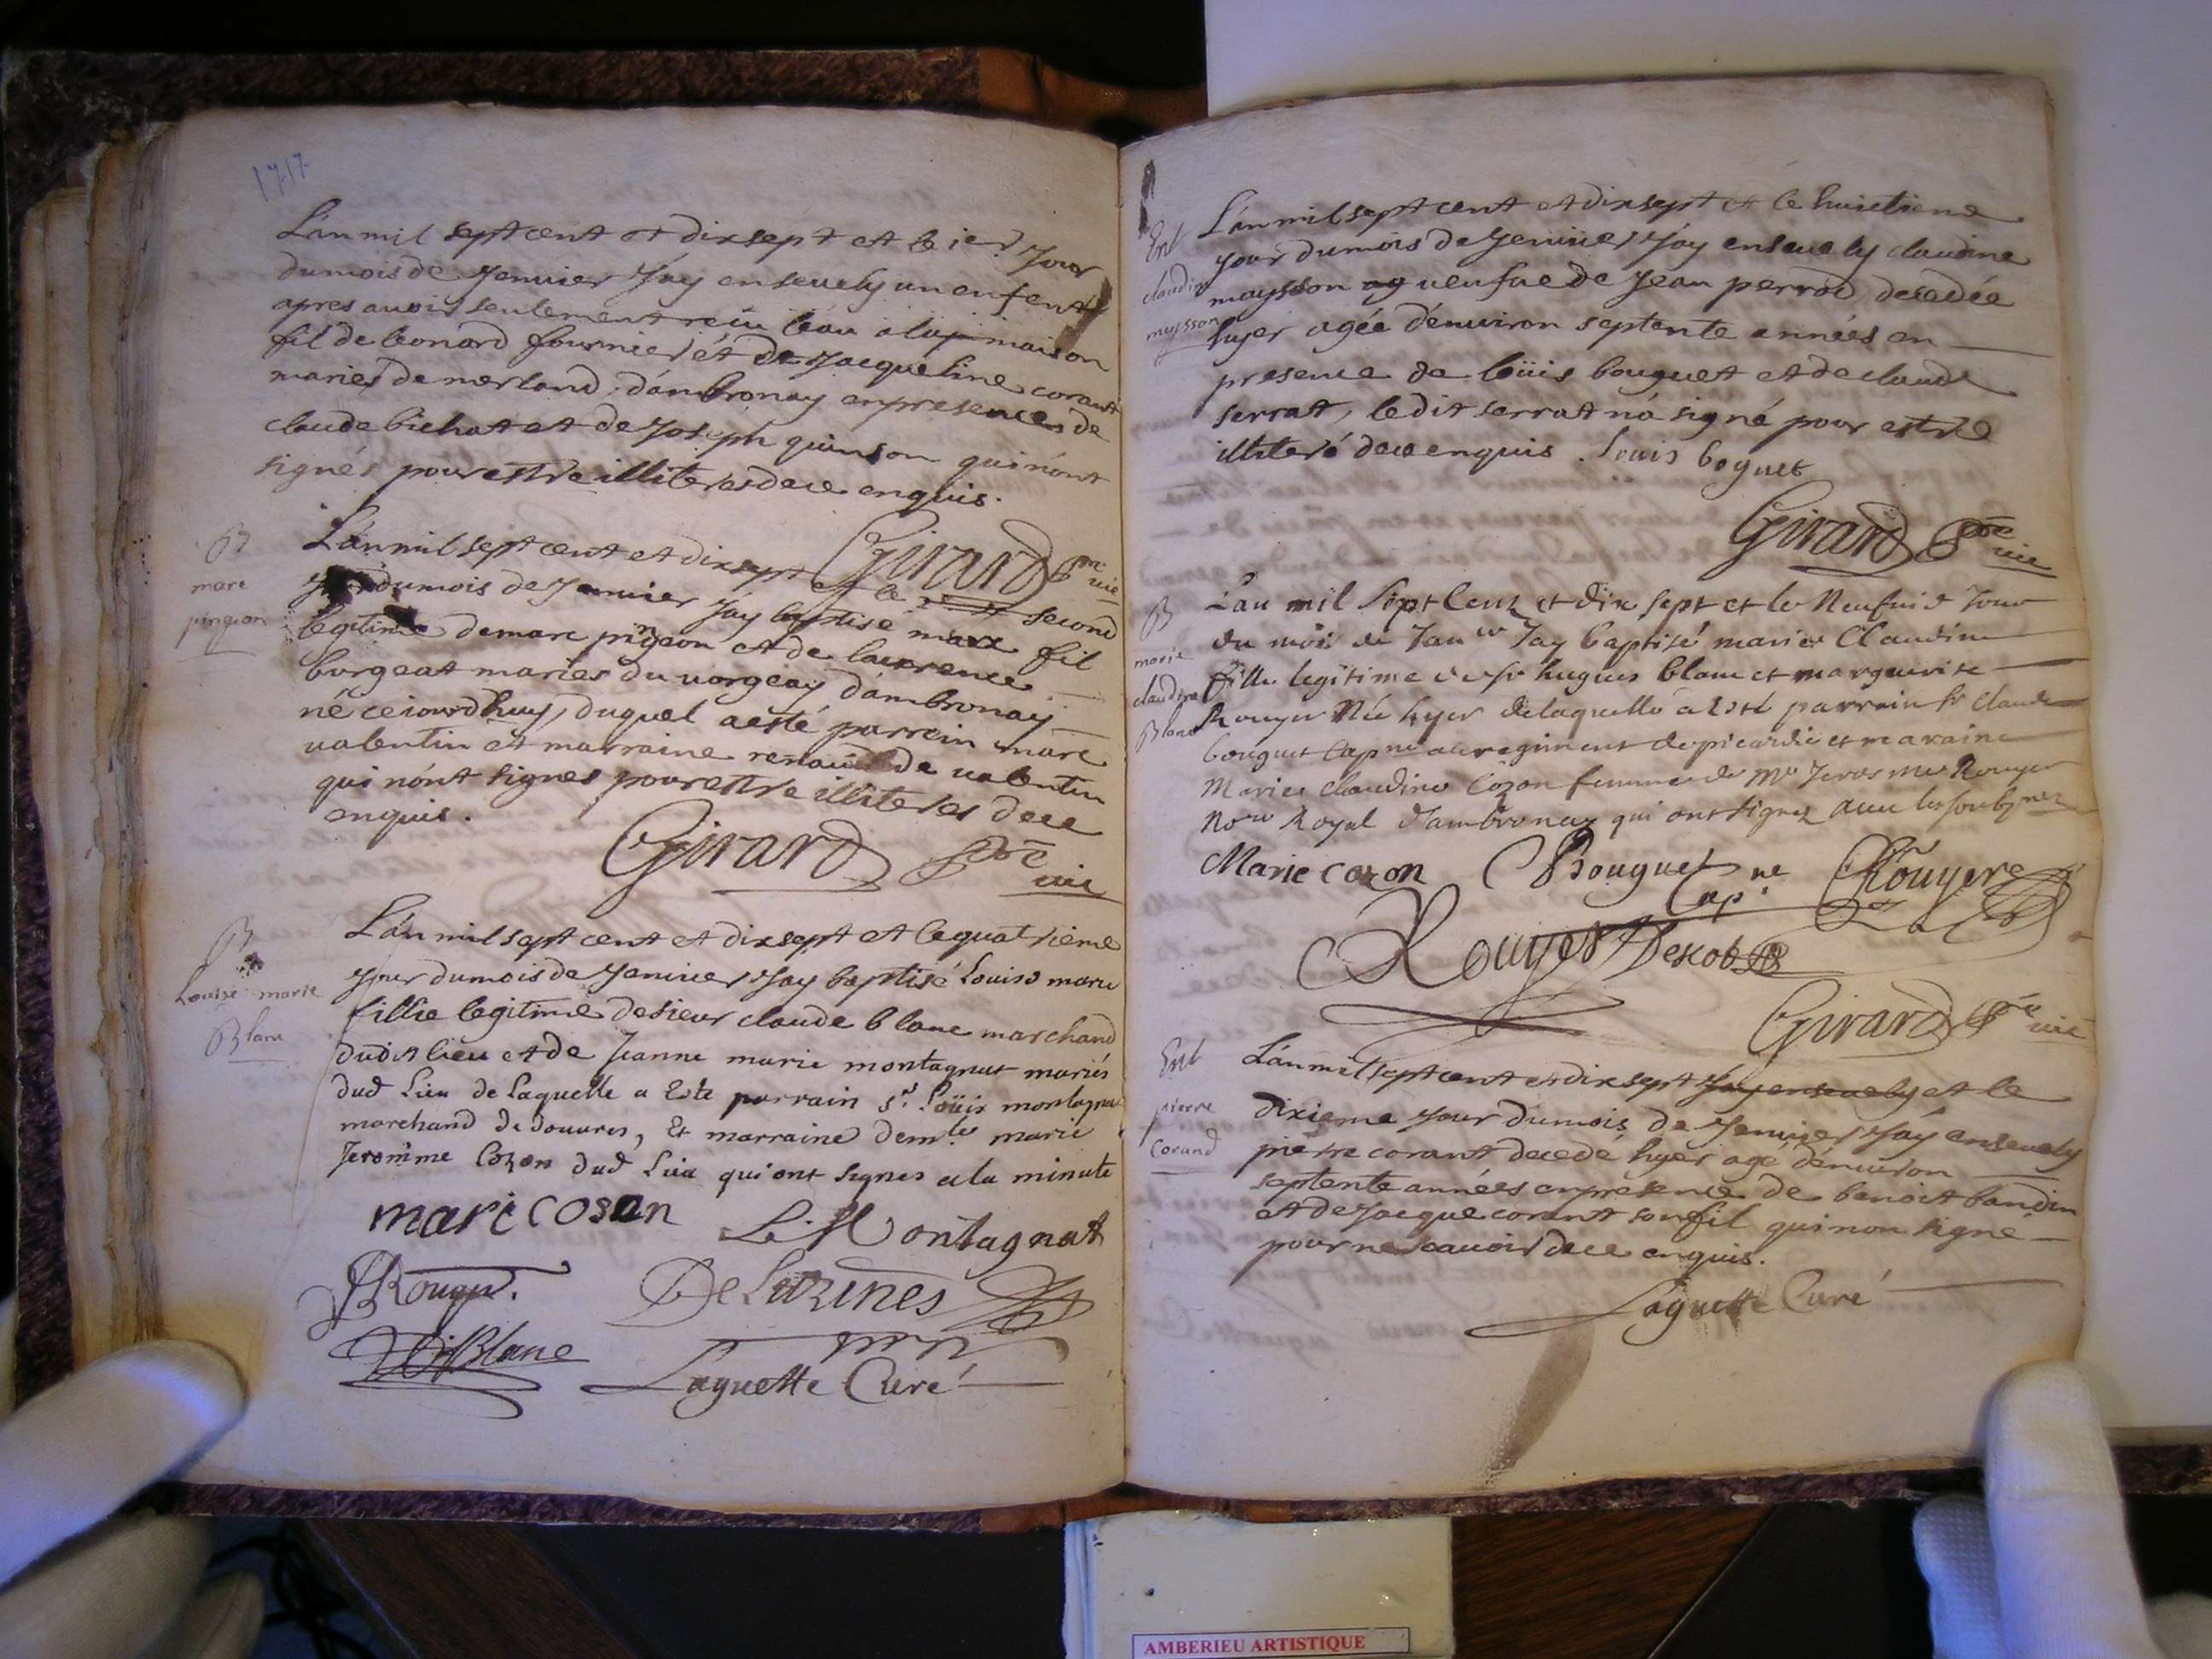 1717
L'an mil sept cent et dix sept et le ier Jour
du mois de Jenvier J'ay ensevely un enfent
apres avoir seulement reçu l'eau a la maison
fil de leonard fournier et de Jacqueline corant
mariés de merland d'ambronay en presences de
claude bichat et de Joseph quinson qui n'ont
signés pour estre illiteres de ce enquis.
Girard pre vic
B
marc
pingeon
L'an mil sept cent et dix sept et le second
jour du mois de Jenvier J'ay baptisé marc fil
legitime de marc pingeon et de laurence
burgeat mariés du vorgeay d'ambronay
né ce iourd'huy, duquel a esté parrein marc
valentin et marraine renaude valentin
qui n'ont signes pour estre illiteres de ce
enquis.
Girard pre vic
B
Louise marie
Blanc
L'an mil sept cent et dix sept et le quatrieme
jour du mois de Jenvier J'ay baptisé Louise marie
fillie legitime de sieur claude blanc marchand
dudit lieu et de Jeanne marie montagnat mariés
dud Lieu de Laquelle a Este parrain sr. Loüis montagnat
marchand de douvres, Et marraine demlle marie
Jeromme Cozon dud Lieu qui ont signes a la minute
marie coson L. Montagnat
JRouyer. DeLuzines
Blanc
Laguette Curé
Ent
claudine
mysson
L'an mil sept cent et dix sept et le huictieme
jour du mois de Jenvier J'ay ensevely claudine
maysson ag veufve de Jean perrod decedée
hyer agée d'environ septente années en
presence de loüis bouguet et de claude
serrat, le dit serrat n'a signé pour estre
illiteré de ce enquis. Louis boguet
Girard pre vic
B
marie
claudine
Blanc
L'an mil Sept Cent et dix sept et le Neufvie Jour
du mois de Janer J'ay baptisé marie Claudine
fille legitime de sr hugues blanc et marguerite
Rouyer Née hyer de laquelle a Esté parrain sr Claude
bouguet Capne au regiment de picardie et maraine
Marie Claudine Cozon femme de Me Jerosme Rouyer
Nore Royal d'ambronay qui ont signez avec les soubznez
Marie cozon CBouguet Capne Rouyer
Rouyer Descot
Girard pre vic
Ent
pierre
Corand
L'an mil sept cent et dix sept J'ay ensevely et le
dixieme jour du mois de Jenvier J'ay ensevely
pierre corant decedé hyer agé d'environ
septente années en presence de benoit bandin
et de Jacque corant son fil qui non signé
pour ne scavoir de ce enquis.
Laguette Curé
AMBERIEU ARTISTIQUE